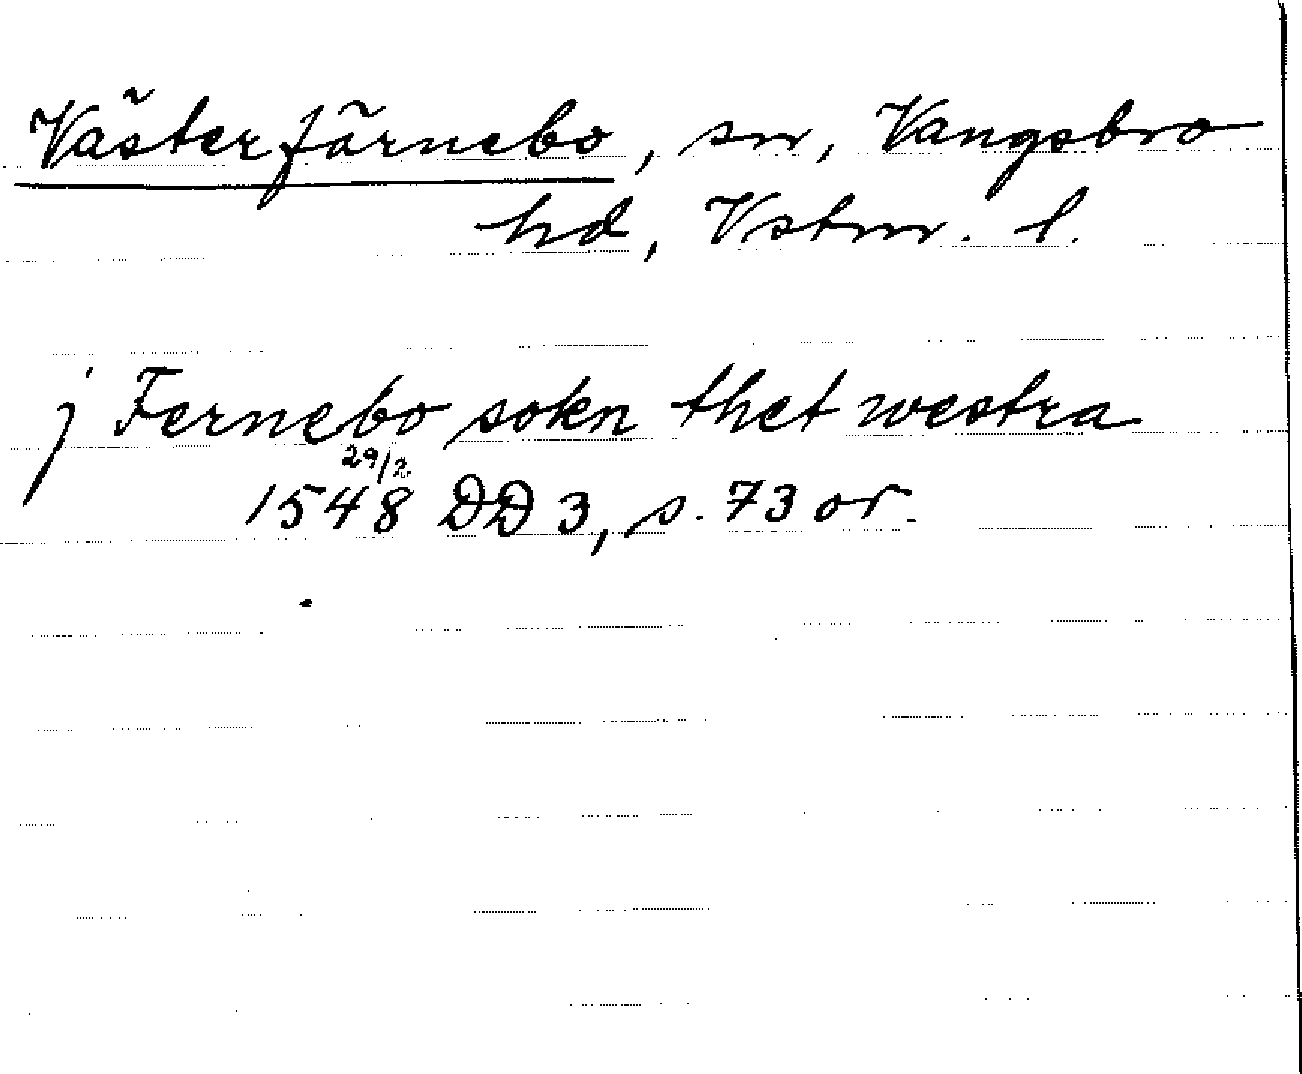 Västerfärnebo, sn, Vangsbro
hd, Vstm. l.
j Fernebo sokn thet westra
29/2
1548 DD 3, s. 73 or.